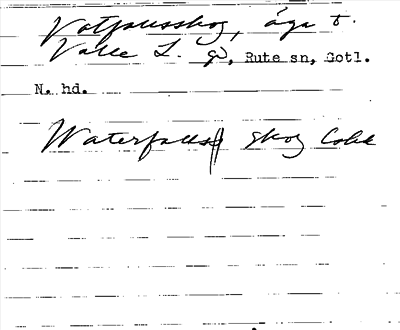 Vatfallsskog, äga t.
Valle L. g, Rute sn, Gotl.
N. hd.
Waterfalls skog Cohk